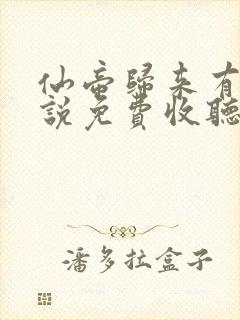 仙帝歸來有
說免費收聽
潘多拉盒子